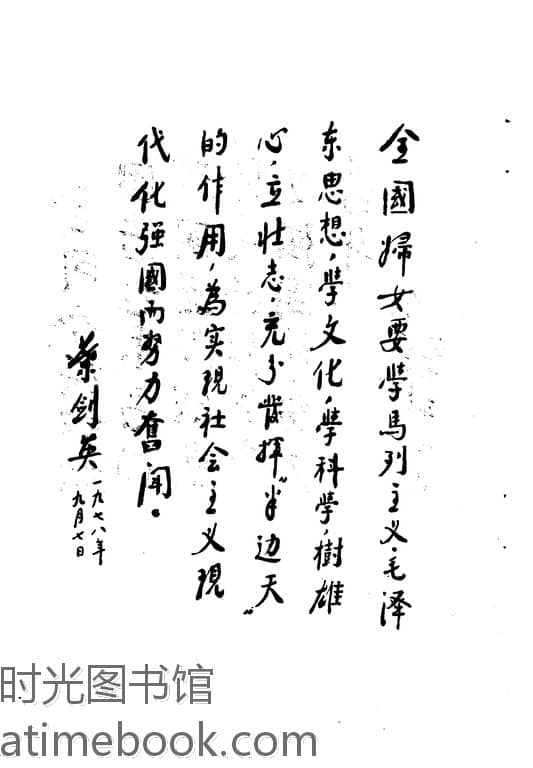 全國婦女要學馬列主义、毛泽
东思想，學文化，學科學，樹雄
心，立壮志，充分發揮“半边天”
的作用，為实現社会主义現
代化强國而努力奮闘。
葉剑英
一九七八年
九月七日
时光图书馆
atimebook.com